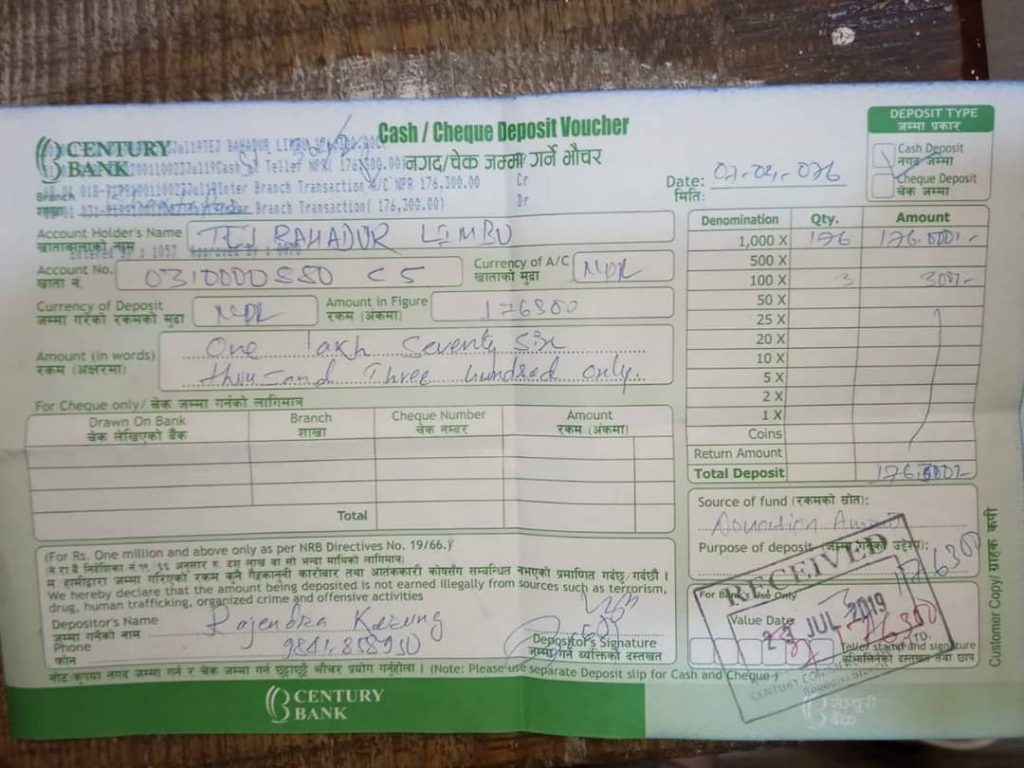 CENTURY BANK
Cash / Cheque Deposit Voucher
नगद/चेक जम्मा गर्ने भौचर
DEPOSIT TYPE
जम्मा प्रकार
Cash Deposit
नगद जम्मा
Cheque Deposit
चेक जम्मा
Teller NPR
Inter Branch Transaction A/C NPR 176,300.00 Cr
Branch Transaction( 176,300.00) Dr
Branch
शाखा
Date: 07-04-076
मिति:
Account Holder's Name TEJ BAHADUR LIMBU
Account No. 0310000550 C5
खाता नं.
Currency of A/C NPR
खाताको मुद्रा
Currency of Deposit NPR
जम्मा गरेको रकमको मुद्रा
Amount in Figure 176300
रकम (अंकमा)
Amount (in words) One lakh Seventy Six
रकम (अक्षरमा) thousand Three hundred only.
Denomination Qty. Amount
1,000 X 176 176,000/-
500 X
100 X 3 300/-
50 X
25 X
20 X
10 X
5 X
2 X
1 X
Coins
Return Amount
Total Deposit 176,300/-
For Cheque only/ चेक जम्मा गर्नको लागिमात्र
Drawn On Bank Branch Cheque Number Amount
चेक लेखिएको बैंक शाखा चेक नम्बर रकम (अंकमा)
Total
Source of fund (रकमको स्रोत):
Purpose of deposit (जम्मा गर्नुको उद्देश्य):
176300
(For Rs. One million and above only as per NRB Directives No. 19/66.)
We hereby declare that the amount being deposited is not earned illegally from sources such as terrorism,
drug, human trafficking, organized crime and offensive activities
Depositor's Name Rajendra Kerung
जम्मा गर्नेको नाम
Phone
फोन
Depositor's Signature
जम्मा गर्ने व्यक्तिको दस्तखत
For Bank's Use Only
Value Date
RECEIVED
JUL 2019
176300
Teller stamp and signature
नोट:कृपया नगद जम्मा गर्न र चेक जम्मा गर्न छुट्टाछुट्टै भौचर प्रयोग गर्नुहोला । (Note: Please use separate Deposit slip for Cash and Cheque)
Customer Copy/ ग्राहक कपी
CENTURY BANK
सेञ्चुरी बैंक